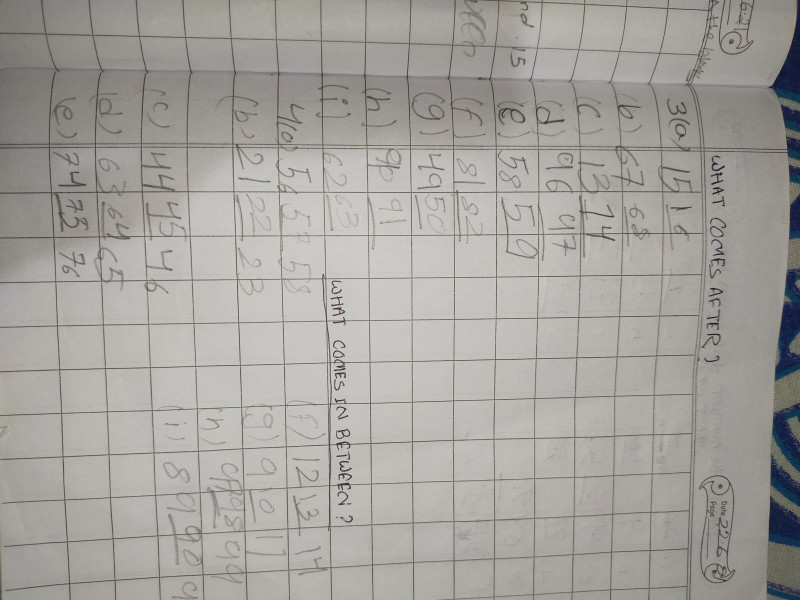 WHAT COMES AFTER?
3(a) 15 16
(b) 67 68
(c) 13 14
(d) 96 97
(e) 58 59
(f) 81 82
(g) 49 50
(h) 90 91
(i) 62 63
WHAT COMES IN BETWEEN?
4(a) 56 57 58
(b) 21 22 23
(c) 44 45 46
(d) 63 64 65
(e) 74 75 76
(f) 12 13 14
(g) 9 10 11
(h) 97 98 99
(i) 89 90 9
Date
Page
nd 15